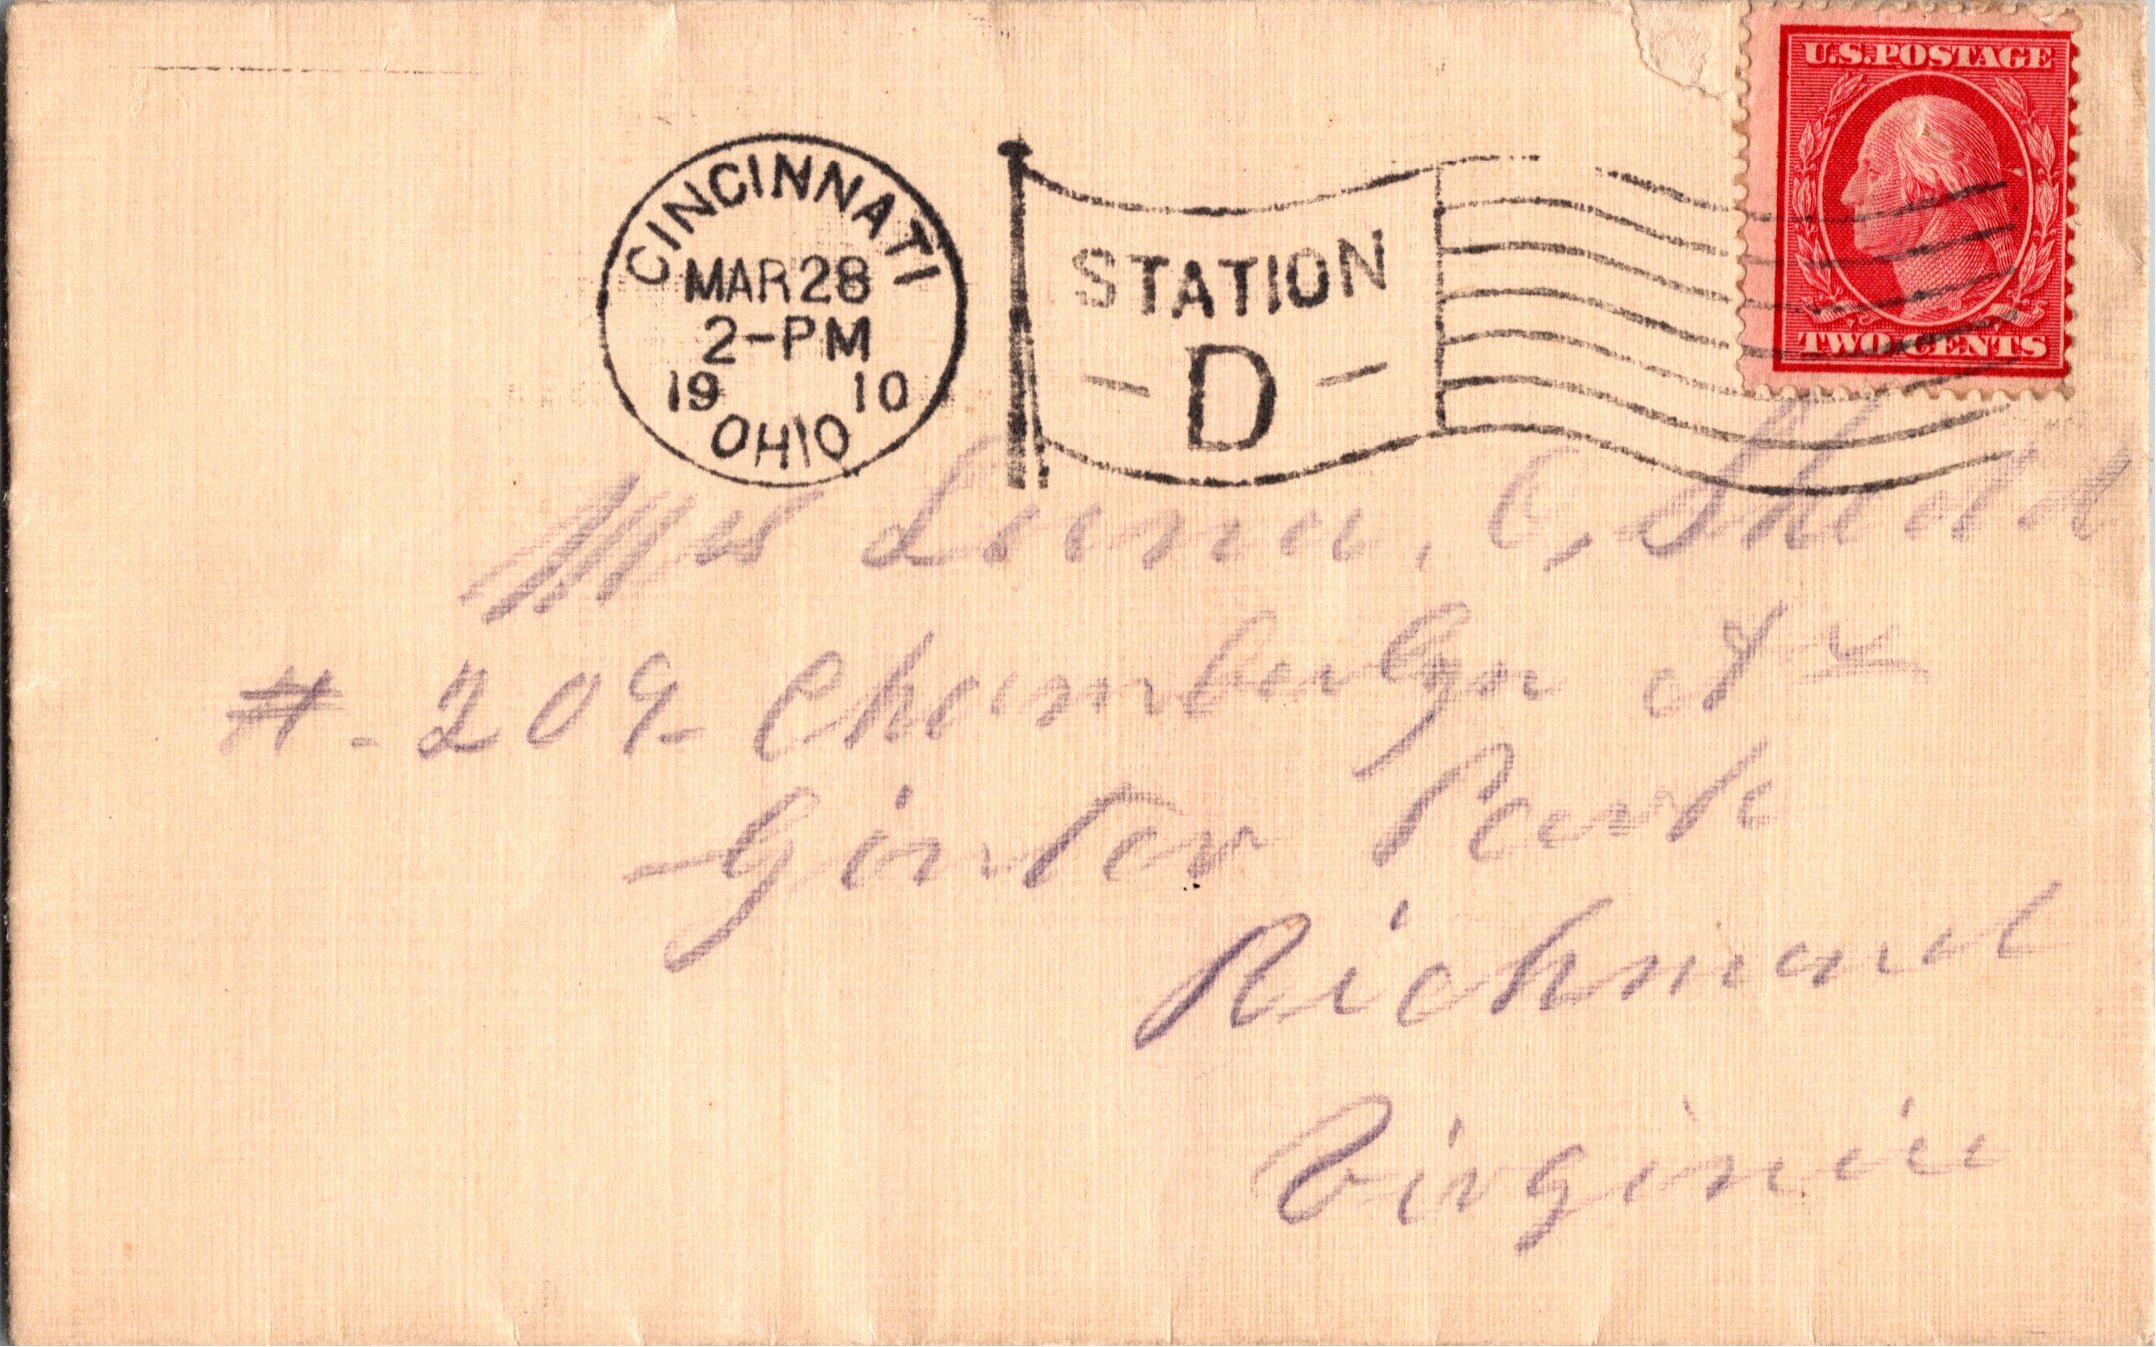 U.S. POSTAGE
TWO CENTS
CINCINNATI
MAR 28
2-PM
19 10
OHIO
STATION
- D -
Mrs C. Shedd
#-209-Chamberlyn
Ginter Park
Richmond
Virginia